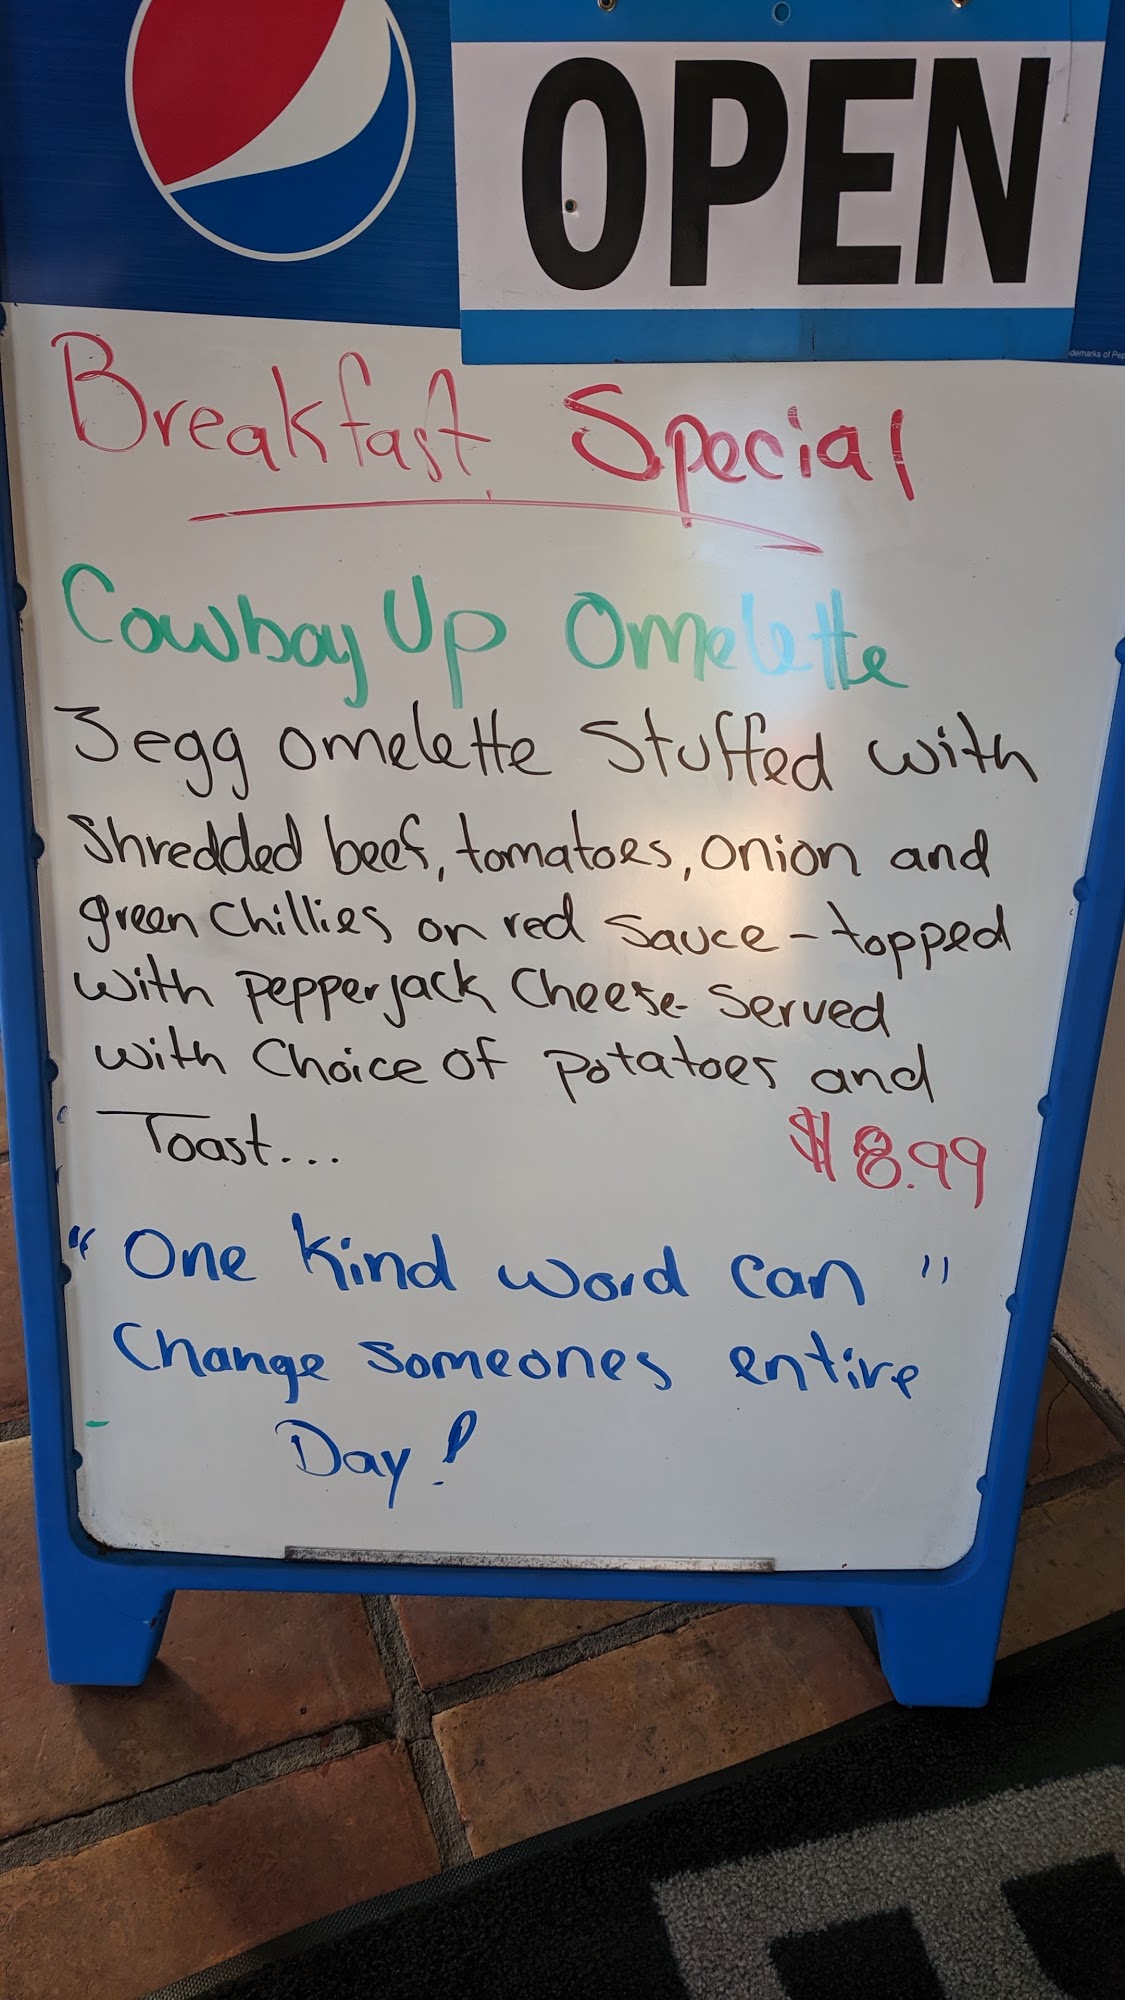 OPEN
demarks of Pep
Breakfast Special
Cowboy Up Omelette
3 egg omelette Stuffed with
Shredded beef, tomatoes, onion and
green Chillies on red Sauce - topped
with pepperjack Cheese - Served
with Choice of potatoes and
Toast...
$8.99
" One kind word can "
Change someones entire
Day!